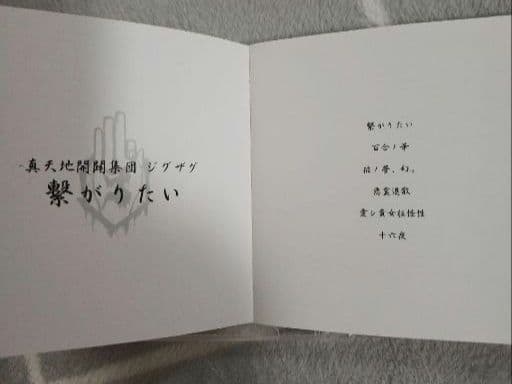 -真天地開闢集団-ジグザグ
繋がりたい
繋がりたい
百合ノ華
彼ノ夢、幻。
悪霊退散
愛シ貴女狂怪性
十六夜